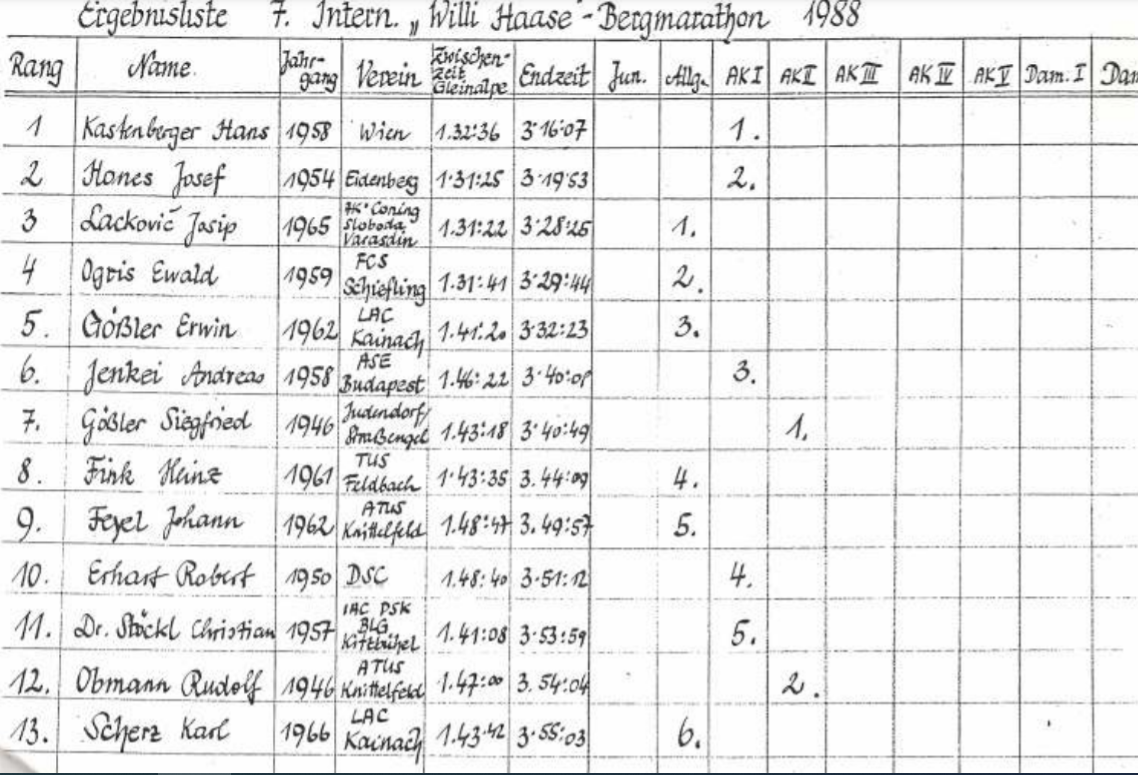 Ergebnisliste 7. Intern. „Willi Haase"-Bergmarathon 1988
Rang Name Jahr-gang Verein Zwischen-zeit Gleinalpe Endzeit Jun. Allg. AK I AK II AK III AK IV AK V Dam. I Dam
1 Kastenberger Hans 1958 Wien 1.32:36 3·16:07 1.
2 Hones Josef 1954 Eidenberg 1·31:25 3·19:53 2.
3 Lacković Josip 1965 AK·Coning Sloboda Varasdin 1.31:22 3·28:25 1.
4 Ogris Ewald 1959 FCS Schiefling 1.31:41 3·29:44 2.
5. Gößler Erwin 1962 LAC Kainach 1.41:20 3·32:23 3.
6. Jenkei Andreas 1958 ASE Budapest 1.46:22 3·40:01 3.
7. Gößler Siegfried 1946 Judendorf/Straßengel 1.43:18 3·40:49 1.
8. Fink Heinz 1961 TUS Feldbach 1·43:35 3.44:09 4.
9. Feyel Johann 1962 ATUS Knittelfeld 1.48:47 3.49:57 5.
10. Erhart Robert 1950 DSC 1.48:40 3·51:12 4.
11. Dr. Stöckl Christian 1957 DSK Kitzbühel 1.41:08 3·53:59 5.
12. Obmann Rudolf 1946 ATUS Knittelfeld 1.47:00 3.54:04 2.
13. Scherz Karl 1966 LAC Kainach 1.43·42 3·55:03 6.